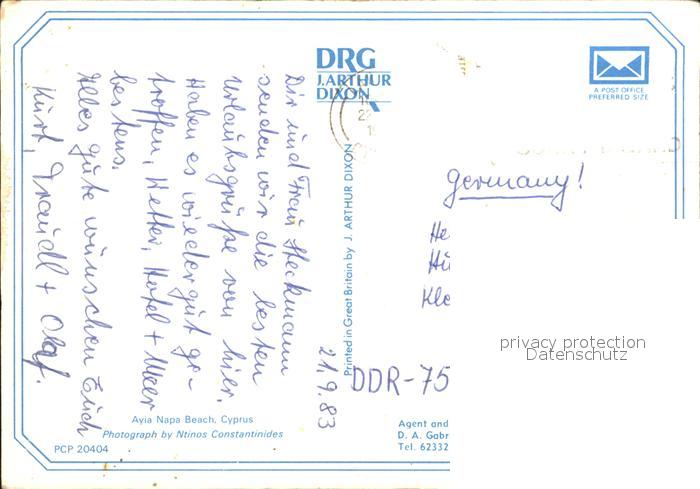 DRG
J. ARTHUR
DIXON
A POST OFFICE
PREFERRED SIZE
21.9.83
Dir und Frau Heckmann
senden wir die besten
Urlaubsgrüße von hier.
Haben es wieder gut ge-
troffen, Wetter, Hotel + Meer
bestens.
Alles gute wünschen Euch
Kurt, Traudl + Olaf.
Printed in Great Britain by J. ARTHUR DIXON
Germany!
He
Kle
DDR-75
privacy protection
Datenschutz
Ayia Napa Beach, Cyprus
Photograph by Ntinos Constantinides
PCP 20404
Agent and
D. A. Gabr
Tel. 62332